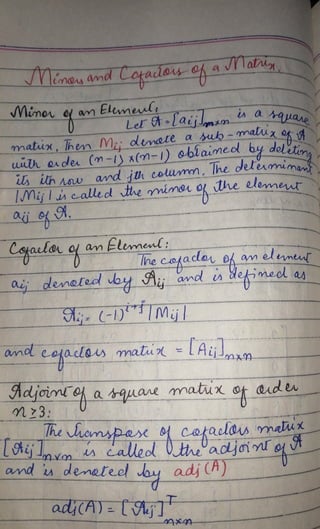 Minors and Cofactors of a Matrix.
Minor of an Element:
Let A = [aij]n×n is a square
matrix. Then Mij denote a sub-matrix of A
with order (n-1) x(n-1) obtained by deleting
its ith row and jth column. The determinant
|Mij| is called the minor of the element
aij of A.
Cofactor of an Element:
The cofactor of an element
aij denoted by Aij and is defined as
Aij = (-1)^i+j |Mij|
and cofactors matrix = [Aij]n×n
Adjoint of a square matrix of order
n ≥ 3:
The Transpose of cofactors matrix
[Aij]n×n is called the adjoint of A
and is denoted by adj(A)
adj(A) = [Aij]^T n×n